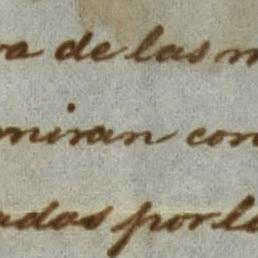 ra de las m
niran con
ados por la